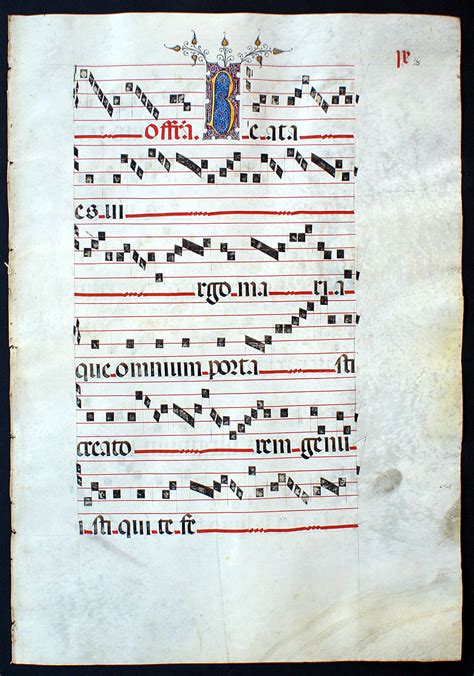 Offra. Beata
es ui
rgo ma ria
que omnium porta sti
creato rem genu
i sti qui te fe